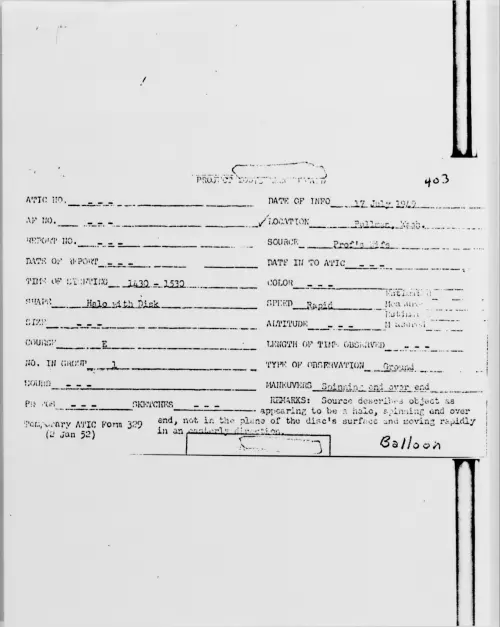 403
ATIC NO. - - - DATE OF INFO 17 July 1949
AF NO. - - - ✓ LOCATION Pullman, Wash.
REPORT NO. - - - SOURCE Prof's Wife
DATE OF REPORT - - - DATE IN TO ATIC - - -
TIME OF SIGHTING 1430 - 1530 COLOR - - -
SHAPE Halo with Disk SPEED Rapid
SIZE - - - ALTITUDE - - -
COURSE E LENGTH OF TIME OBSERVED - - -
NO. IN GROUP 1 TYPE OF OBSERVATION Ground
SOUND - - - MANEUVERS Spinning end over end
PHOTOS - - - SKETCHES - - -
REMARKS: Source describes object as
appearing to be a halo, spinning end over
end, not in the plane of the disc's surface and moving rapidly
in an easterly direction.
Temporary ATIC Form 329
(2 Jan 52)
Balloon